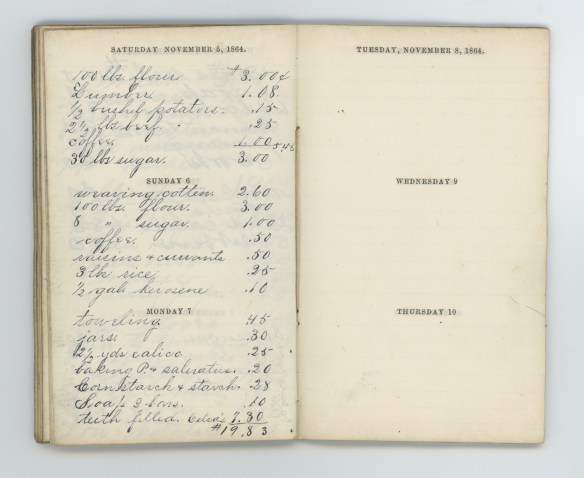 SATURDAY NOVEMBER 5, 1864.
100 lbs. flour $3.00
1.08
1/2 bushel potatoes. .15
2 1/2 lbs beef .25
coffee 1.00 5.48
30 lbs sugar. 3.00
SUNDAY 6
weaving cotten. 2.60
100 lbs. flour. 3.00
8 " sugar. 1.00
coffee. .50
raisins & currants .50
3 lb rice .25
1/2 gall kerosene .10
MONDAY 7
toweling .45
jars. .30
2 1/2 yds calico .25
baking P. & saleratus. .20
Cornstarch & starch. .28
Soap 3 bars. .10
teeth filled. 7.30
$19.83
TUESDAY, NOVEMBER 8, 1864.
WEDNESDAY 9
THURSDAY 10